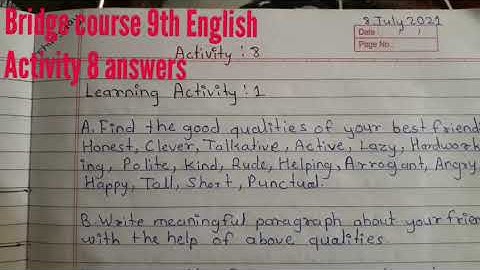 Bridge course 9th English
Activity 8 answers
8 July 2021
Date :
Page No:
Activity : 8
Learning Activity : 1
A. Find the good qualities of your best friend
Honest, Clever, Talkative, Active, Lazy, Hardwork
ing, Polite, Kind, Rude, Helping, Arrogant, Angry
Happy, Tall, Short, Punctual.
B. Write meaningful paragraph about your frien
with the help of above qualities